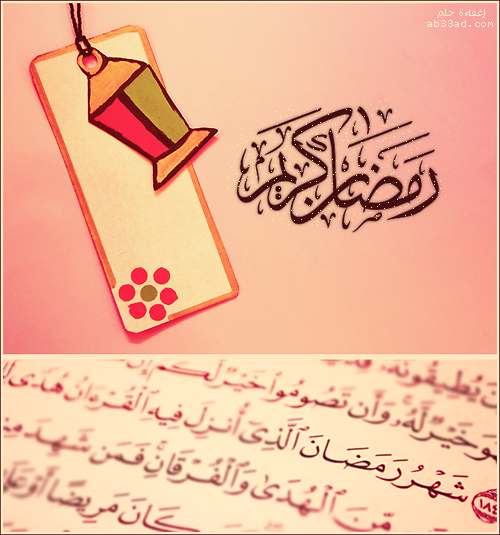 إغفاءة حلم
ab33ad.com
رمضان كريم
يُطِيقُونَهُۥ
خَيْرٌ لَّهُۥ وَأَن تَصُومُوا۟ خَيْرٌ لَّكُمْ إِن
١٨٤ شَهْرُ رَمَضَانَ ٱلَّذِىٓ أُنزِلَ فِيهِ ٱلْقُرْءَانُ هُدًى
مِّنَ ٱلْهُدَىٰ وَٱلْفُرْقَانِ فَمَن شَهِدَ
كَانَ مَرِيضًا أَوْ